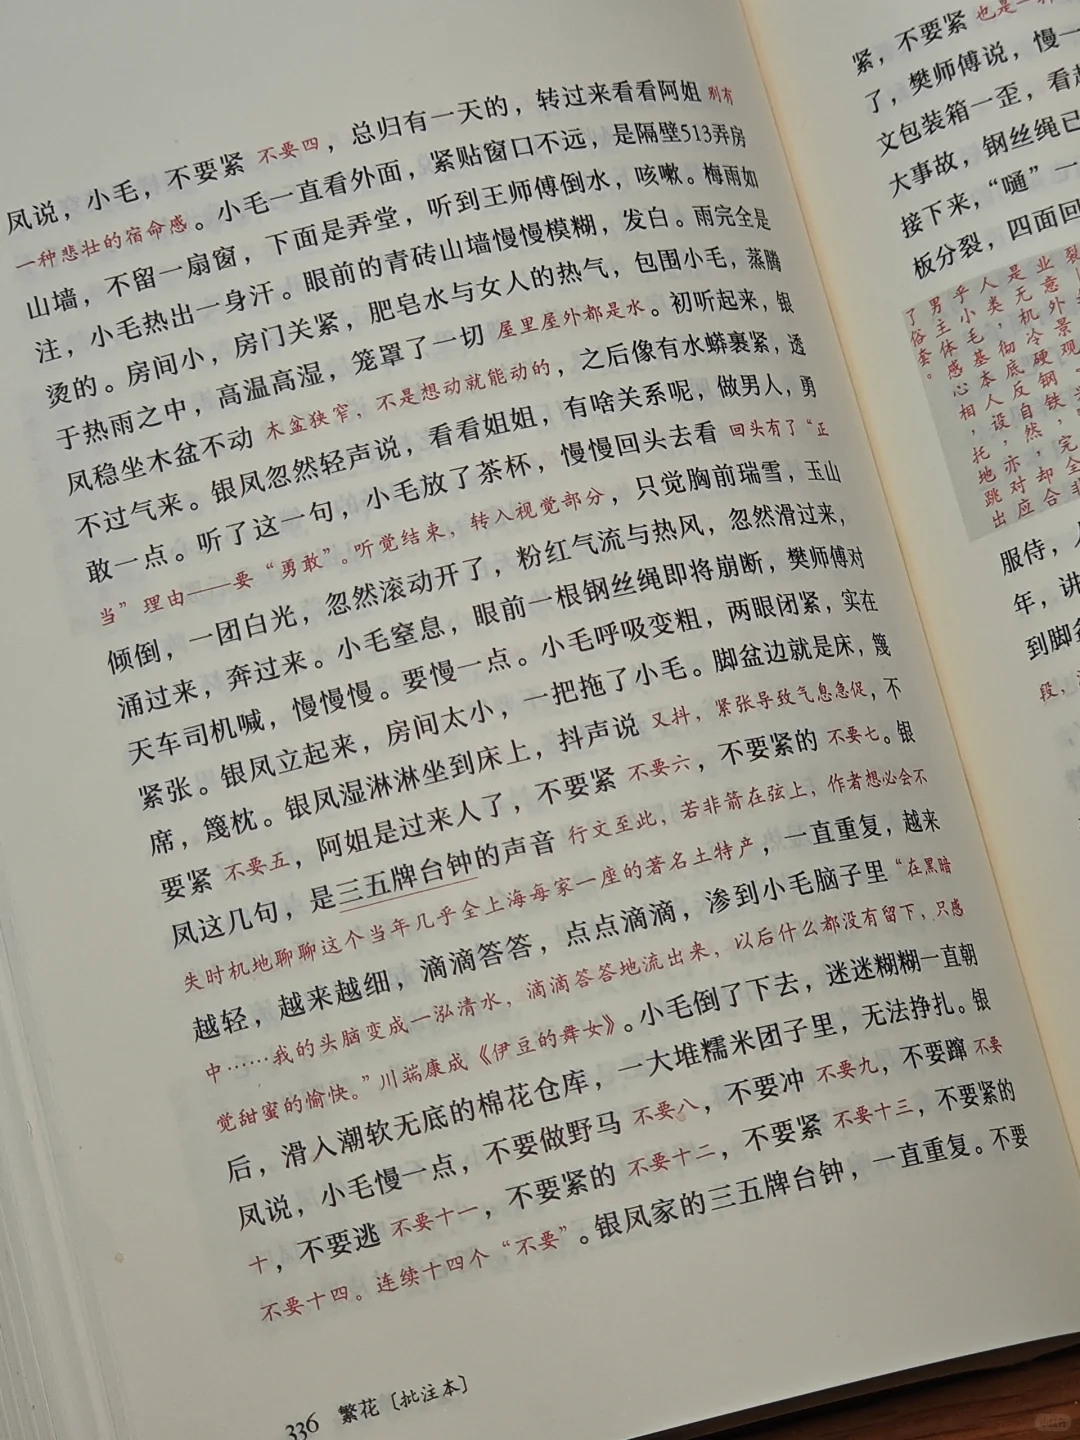 凤说，小毛，不要紧 不要四，总归有一天的，转过来看看阿姐 别有
一种悲壮的宿命感。小毛一直看外面，紧贴窗口不远，是隔壁513弄房
山墙，不留一扇窗，下面是弄堂，听到王师傅倒水，咳嗽。梅雨如
注，小毛热出一身汗。眼前的青砖山墙慢慢模糊，发白。雨完全是
烫的。房间小，房门关紧，肥皂水与女人的热气，包围小毛，蒸腾
于热雨之中，高温高湿，笼罩了一切 屋里屋外都是水。初听起来，银
凤稳坐木盆不动 木盆狭窄，不是想动就能动的，之后像有水蟒裹紧，透
不过气来。银凤忽然轻声说，看看姐姐，有啥关系呢，做男人，勇
敢一点。听了这一句，小毛放了茶杯，慢慢回头去看 回头有了“正
当”理由——要“勇敢”。听觉结束，转入视觉部分，只觉胸前瑞雪，玉山
倾倒，一团白光，忽然滚动开了，粉红气流与热风，忽然滑过来，
涌过来，奔过来。小毛窒息，眼前一根钢丝绳即将崩断，樊师傅对
天车司机喊，慢慢慢。要慢一点。小毛呼吸变粗，两眼闭紧，实在
紧张。银凤立起来，房间太小，一把拖了小毛。脚盆边就是床，篾
席，篾枕。银凤湿淋淋坐到床上，抖声说 又抖，紧张导致气息急促，不
要紧 不要五，阿姐是过来人了，不要紧 不要六，不要紧的 不要七。银
凤这几句，是三五牌台钟的声音 行文至此，若非箭在弦上，作者想必会不
失时机地聊聊这个当年几乎全上海每家一座的著名土特产，一直重复，越来
越轻，越来越细，滴滴答答，点点滴滴，渗到小毛脑子里 “在黑暗
中……我的头脑变成一泓清水，滴滴答答地流出来，以后什么都没有留下，只感
觉甜蜜的愉快。”川端康成《伊豆的舞女》。小毛倒了下去，迷迷糊糊一直朝
后，滑入潮软无底的棉花仓库，一大堆糯米团子里，无法挣扎。银
凤说，小毛慢一点，不要做野马 不要八，不要冲 不要九，不要蹿 不要
十，不要逃 不要十一，不要紧的 不要十二，不要紧 不要十三，不要紧的
不要十四。连续十四个“不要”。银凤家的三五牌台钟，一直重复。不要
336 繁花［批注本］
紧，不要紧 也是一种
了，樊师傅说，慢一
文包装箱一歪，看起
大事故，钢丝绳已
接下来，“嗵”一
板分裂，四面回
服侍，人
年，讲
到脚盆
段，